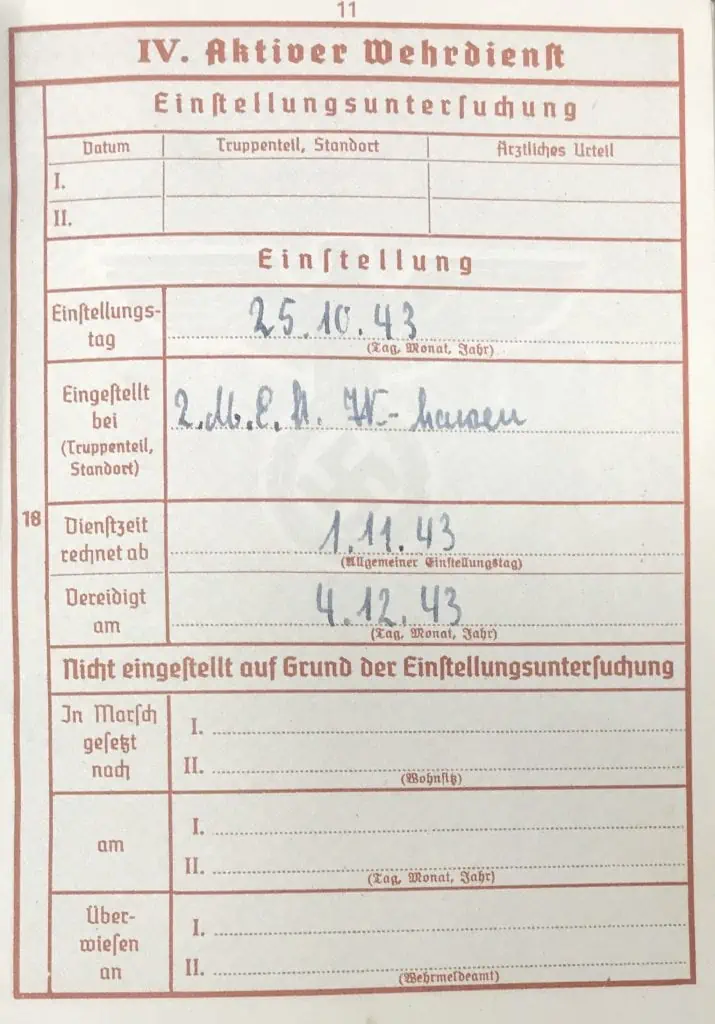 11
IV. Aktiver Wehrdienst
Einstellungsuntersuchung
Datum Truppenteil, Standort Ärztliches Urteil
I.
II.
Einstellung
Einstellungs-
tag
25.10.43
(Tag, Monat, Jahr)
Eingestellt
bei
(Truppenteil,
Standort)
2. M. E. A. W.-hausen
18
Dienstzeit
rechnet ab
1.11.43
(Allgemeiner Einstellungstag)
Vereidigt
am
4.12.43
(Tag, Monat, Jahr)
Nicht eingestellt auf Grund der Einstellungsuntersuchung
In Marsch
gesetzt
nach
I.
II.
(Wohnsitz)
am
I.
II.
(Tag, Monat, Jahr)
Über-
wiesen
an
I.
II.
(Wehrmeldeamt)